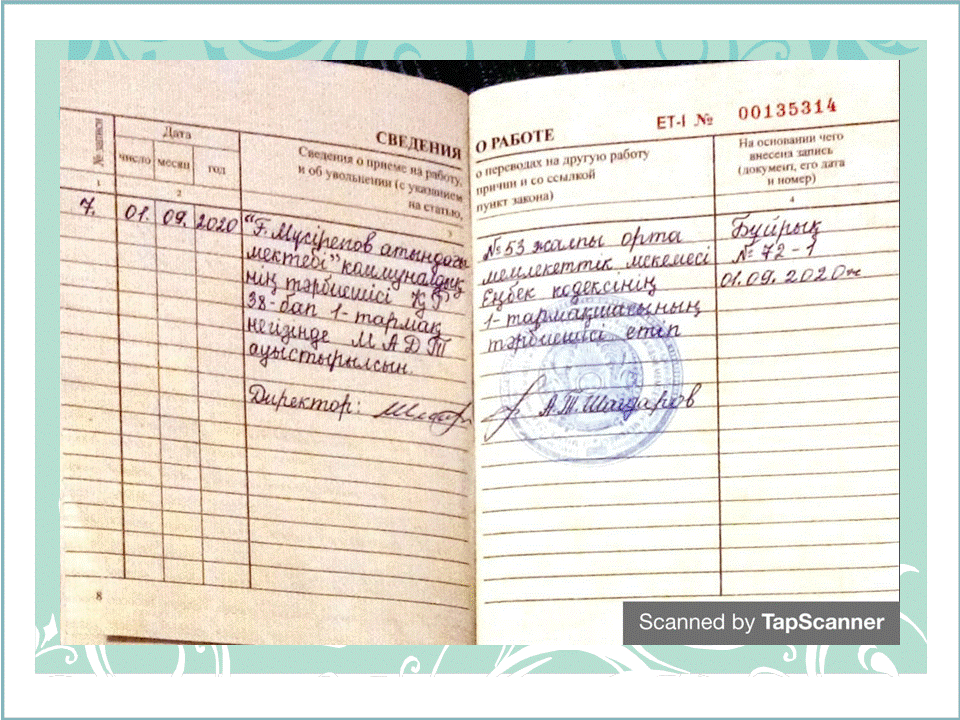 СВЕДЕНИЯ О РАБОТЕ
ET-I № 00135314
№ записи
Дата
число месяц год
Сведения о приеме на работу, о переводах на другую работу
и об увольнении (с указанием причин и со ссылкой
на статью, пункт закона)
На основании чего
внесена запись
(документ, его дата
и номер)
1 2 3 4
7. 01. 09. 2020 "Ғ. Мүсірепов атындағы № 53 жалпы орта
мектебі" коммуналдық мемлекеттік мекемесі
нің тәрбиешісі ҚР Еңбек кодексінің
38-бап 1-тармақ 1-тармақшасының
негізінде МАДТ тәрбиешісі етіп
ауыстырылсын.
Бұйрық
№ 72-1
01.09.2020ж
Директор: А.Т.Шағдаров
8
Scanned by TapScanner